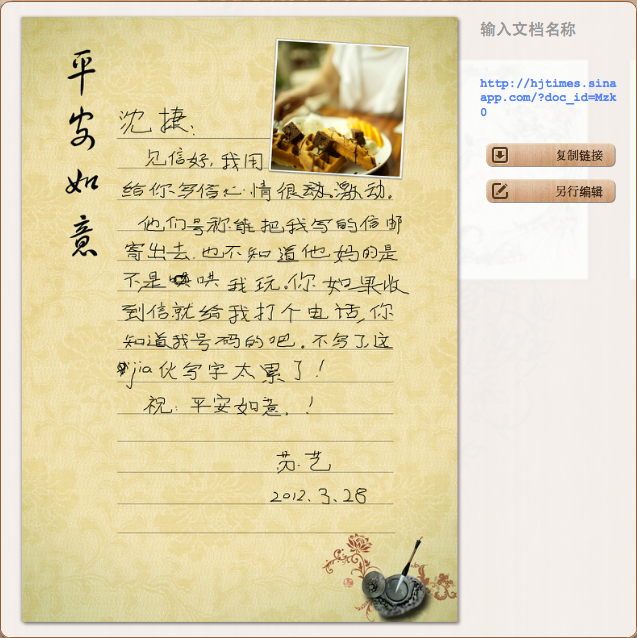 平安如意
沈捷：
见信好，我用
给你写信心情很激动。
他们号称能把我写的信邮
寄出去，也不知道他妈的是
不是哄我玩。你如果收
到信就给我打个电话，你
知道我号码的吧。不写了，这
jia伙写字太累了！
祝：平安如意。！
苏艺
2012.3.28
输入文档名称
http://hjtimes.sina
app.com/?doc_id=Mzk
0
复制链接
另行编辑